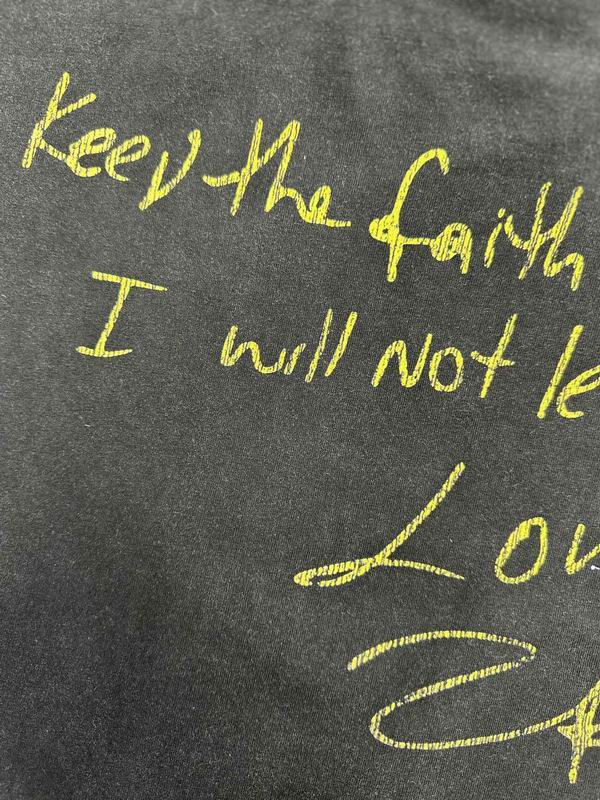 Keep the faith
I will Not le
Lov